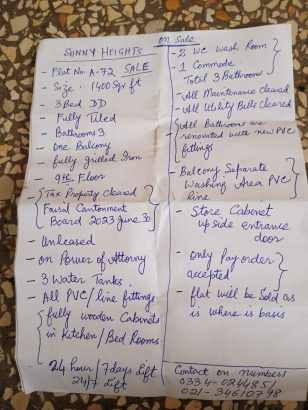 SUNNY HEIGHTS
- Flat No. A-72 SALE
- Size : 1400 Sqr ft
- 3 Bed DD
- Fully Tiled
- Bathrooms 3.
- One Balcony
- fully grilled Iron
- 9th Floor
- Tax Property Cleared
Faisal Cantonment
Board. 2023 June 30
- Unleased
- on Power of Attorny
- 3 Water Tanks.
- All PVC/line fittings
fully wooden Cabinets
in Kitchen/Bed Rooms.
- 24 hour/7days Lift
24/7 Lift
on Sale
- 2 WC Wash Room
- 1 Commode.
Total 3 Bathroom
- All Maintenance cleared
- All Utility Bills Cleared
- All Bathrooms are
renovated with new PVC
fittings
- Balcony Separate
Washing Area PVC
line
- Store Cabinet
upside entrance
door
- only Pay order
accepted
- flat will be Sold as
is where is basis
Contact on numbers
0334-0244851
021-34610798